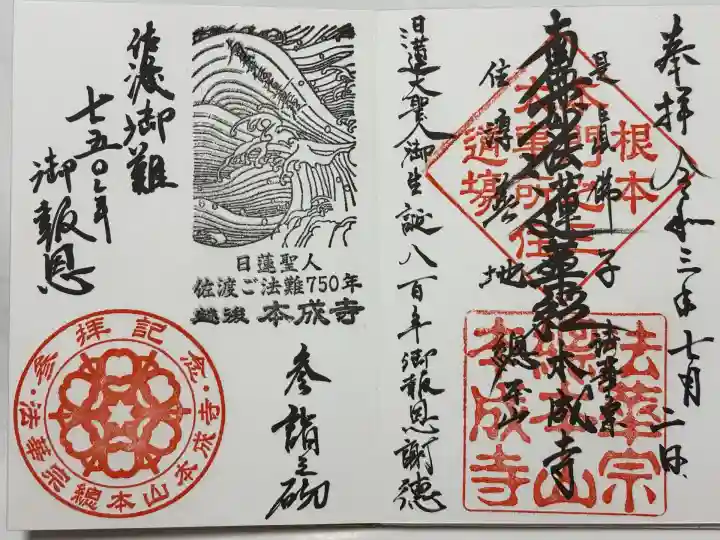 奉拝 令和三年七月二日
是真佛子 法華宗
南無妙法蓮華経 本成寺
住淳善地 總本山
根本
大事所住
道場
法華宗
總本山
本成寺
日蓮大聖人御生誕八百年御報恩謝徳
日蓮聖人
佐渡ご法難750年
越後 本成寺
参詣之砌
佐渡御難
七五〇年
御報恩
参拝記念・法華宗總本山本成寺・